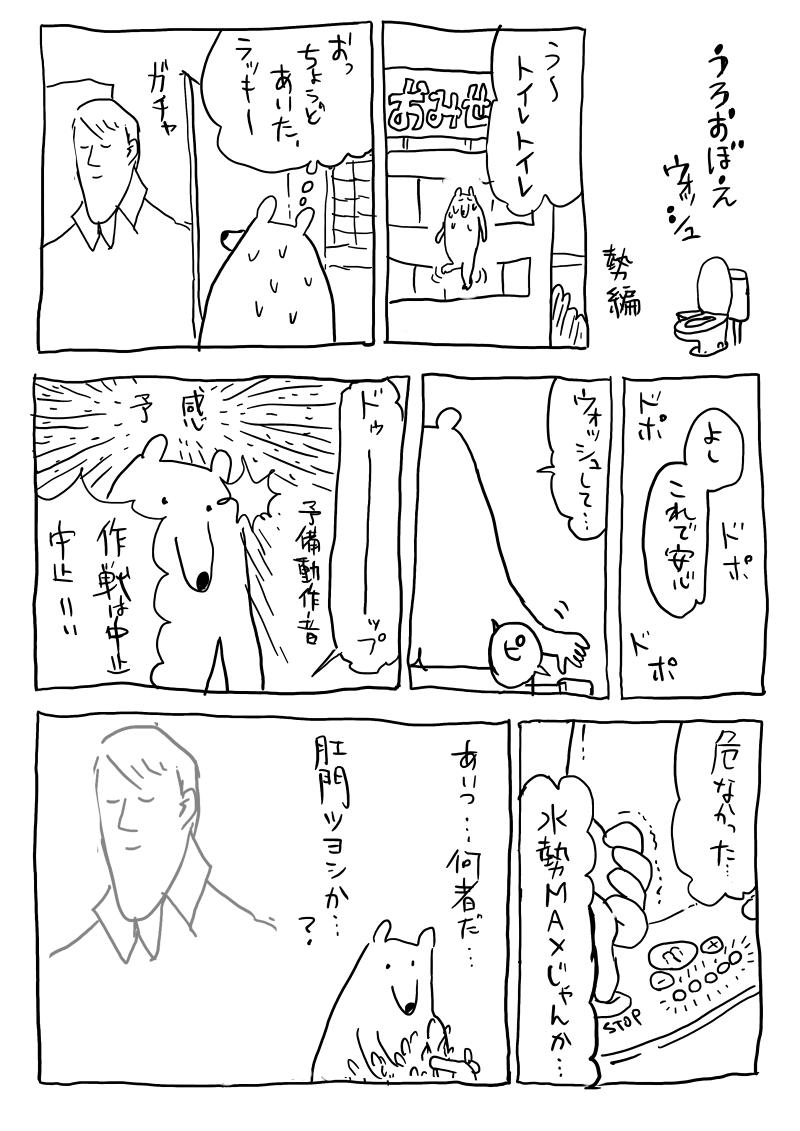 うろおぼえ
ウォッシュ
勢編
う〜
トイレトイレ
おみせ
おっ
ちょうど
あいた。
ラッキー
ガチャ
ドポ
よし
これで安心
ドポ
ドポ
ウォッシュして…
ピ
ドゥ――ップ
予備動作音
予感
作戦は中止
中止!!!
危なかった…
水勢MAXじゃんか…
+
-
STOP
あいつ…何者だ…
肛門ツヨシか…
?